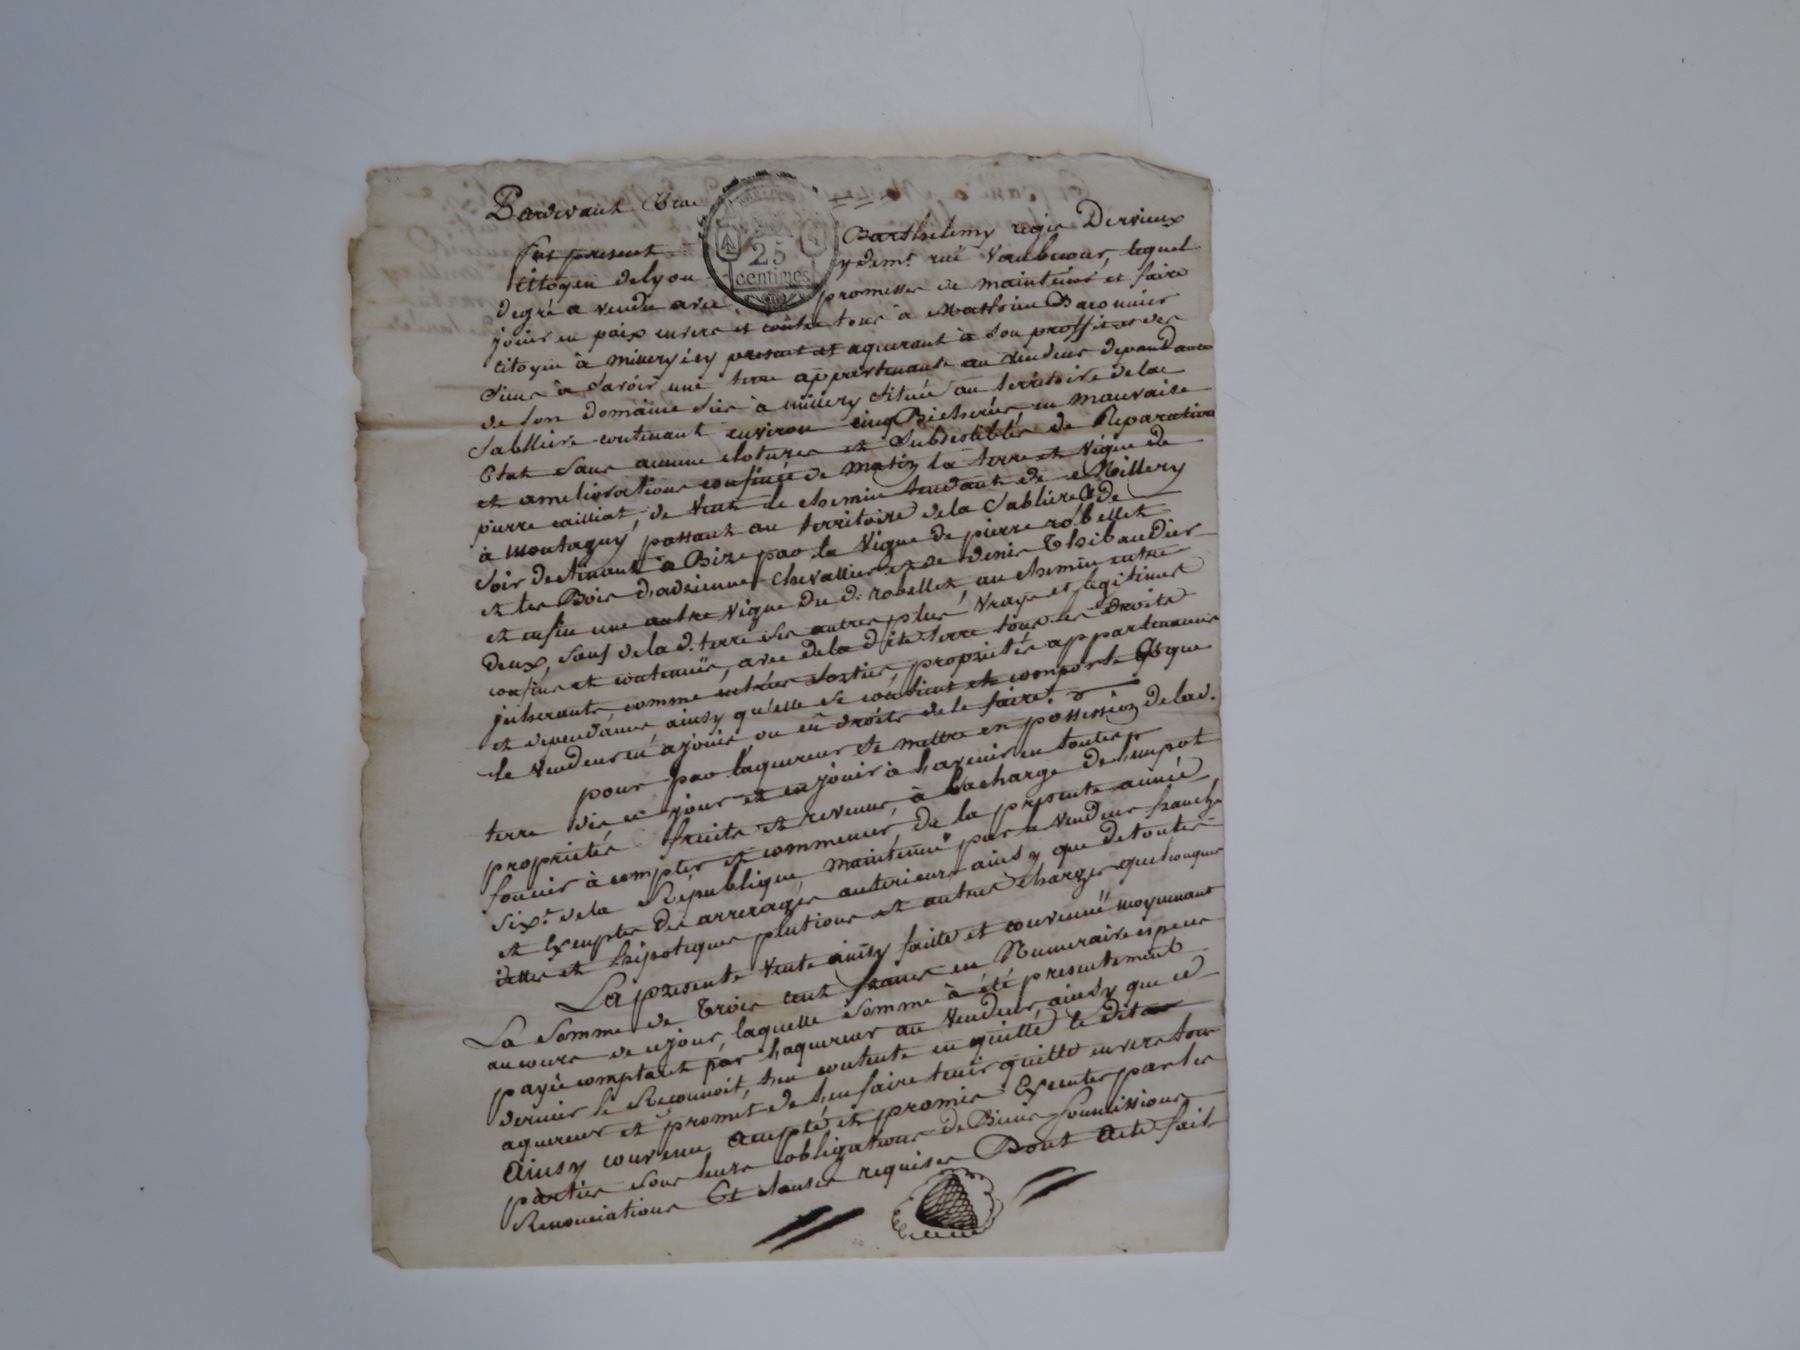 Pardevant
25
centimes
fut present Barthelemy regis Dervieux
citoyen de lyon y dem.t rue Vaubecour, lequel
degré a vendu avec promesses de maintenir et faire
jouir en paix envers et contre tous à Matthieu Baronnier
citoyen à millery icy present et aquerant à son proffit et des
siens à savoir une terre appartenante au vendeur dependante
de son domaine sis à millery située au territoire de la
Sabliere contenant environ cinq Bicherées en mauvaise
Etat sans aucune cloture et Subcestibles de Reparation
et ameliorations confinée de matin la terre et vigne de
pierre cailliat, de vent le chemin tendant de Millery
à Montagny passant au territoire de la Sabliere & de
soir declinant à Bize par la Vigne de pierre robellet
et les Bois d'adrienne Chevallier et de denis Thibaudier
et enfin une autre vigne du d. robellet, au chemin entre
deux, sauf de la d. terre ses autres plus vrays et legitimes
confins et contenues, avec de la dite terre tous les droits
jntherants comme entrées sorties, proprietés appartenances
et dependances, ainsy qu'elle se contient et comporte & que
le vendeur en a joui ou eü droits de le faire.
pour par l'aquereur se mettre en possession de la d.
terre dès ce jour et en jouir à l'avenir en toutes
proprietés fruits et revenus, à la charge de l'impot
foncier à compter et commencer de la presente année
six.e de la Republique maintenüe par le vendeur franche
et Exempte des arrerages anterieurs ainsy que de toutes
dettes et hipoteques plutions et autres charges quelconques
La presente vente ainsy faitte et convenüe moyennant
La Somme de Trois cent francs en Numeraire especes
au cours de ce jour, laquelle somme à été presentement
payée comptant par l'aquereur au vendeur, ainsy que ce
dernier le Reconnoit, s'en contente en quitte le dit
aquereur et promet de l'en faire tenir quitte envers tous
Ainsy convenu accepté et promis Executer par les
parties sous leurs obligations de Biens Soumissions
Renonciations Et clauses requises Dont Acte fait